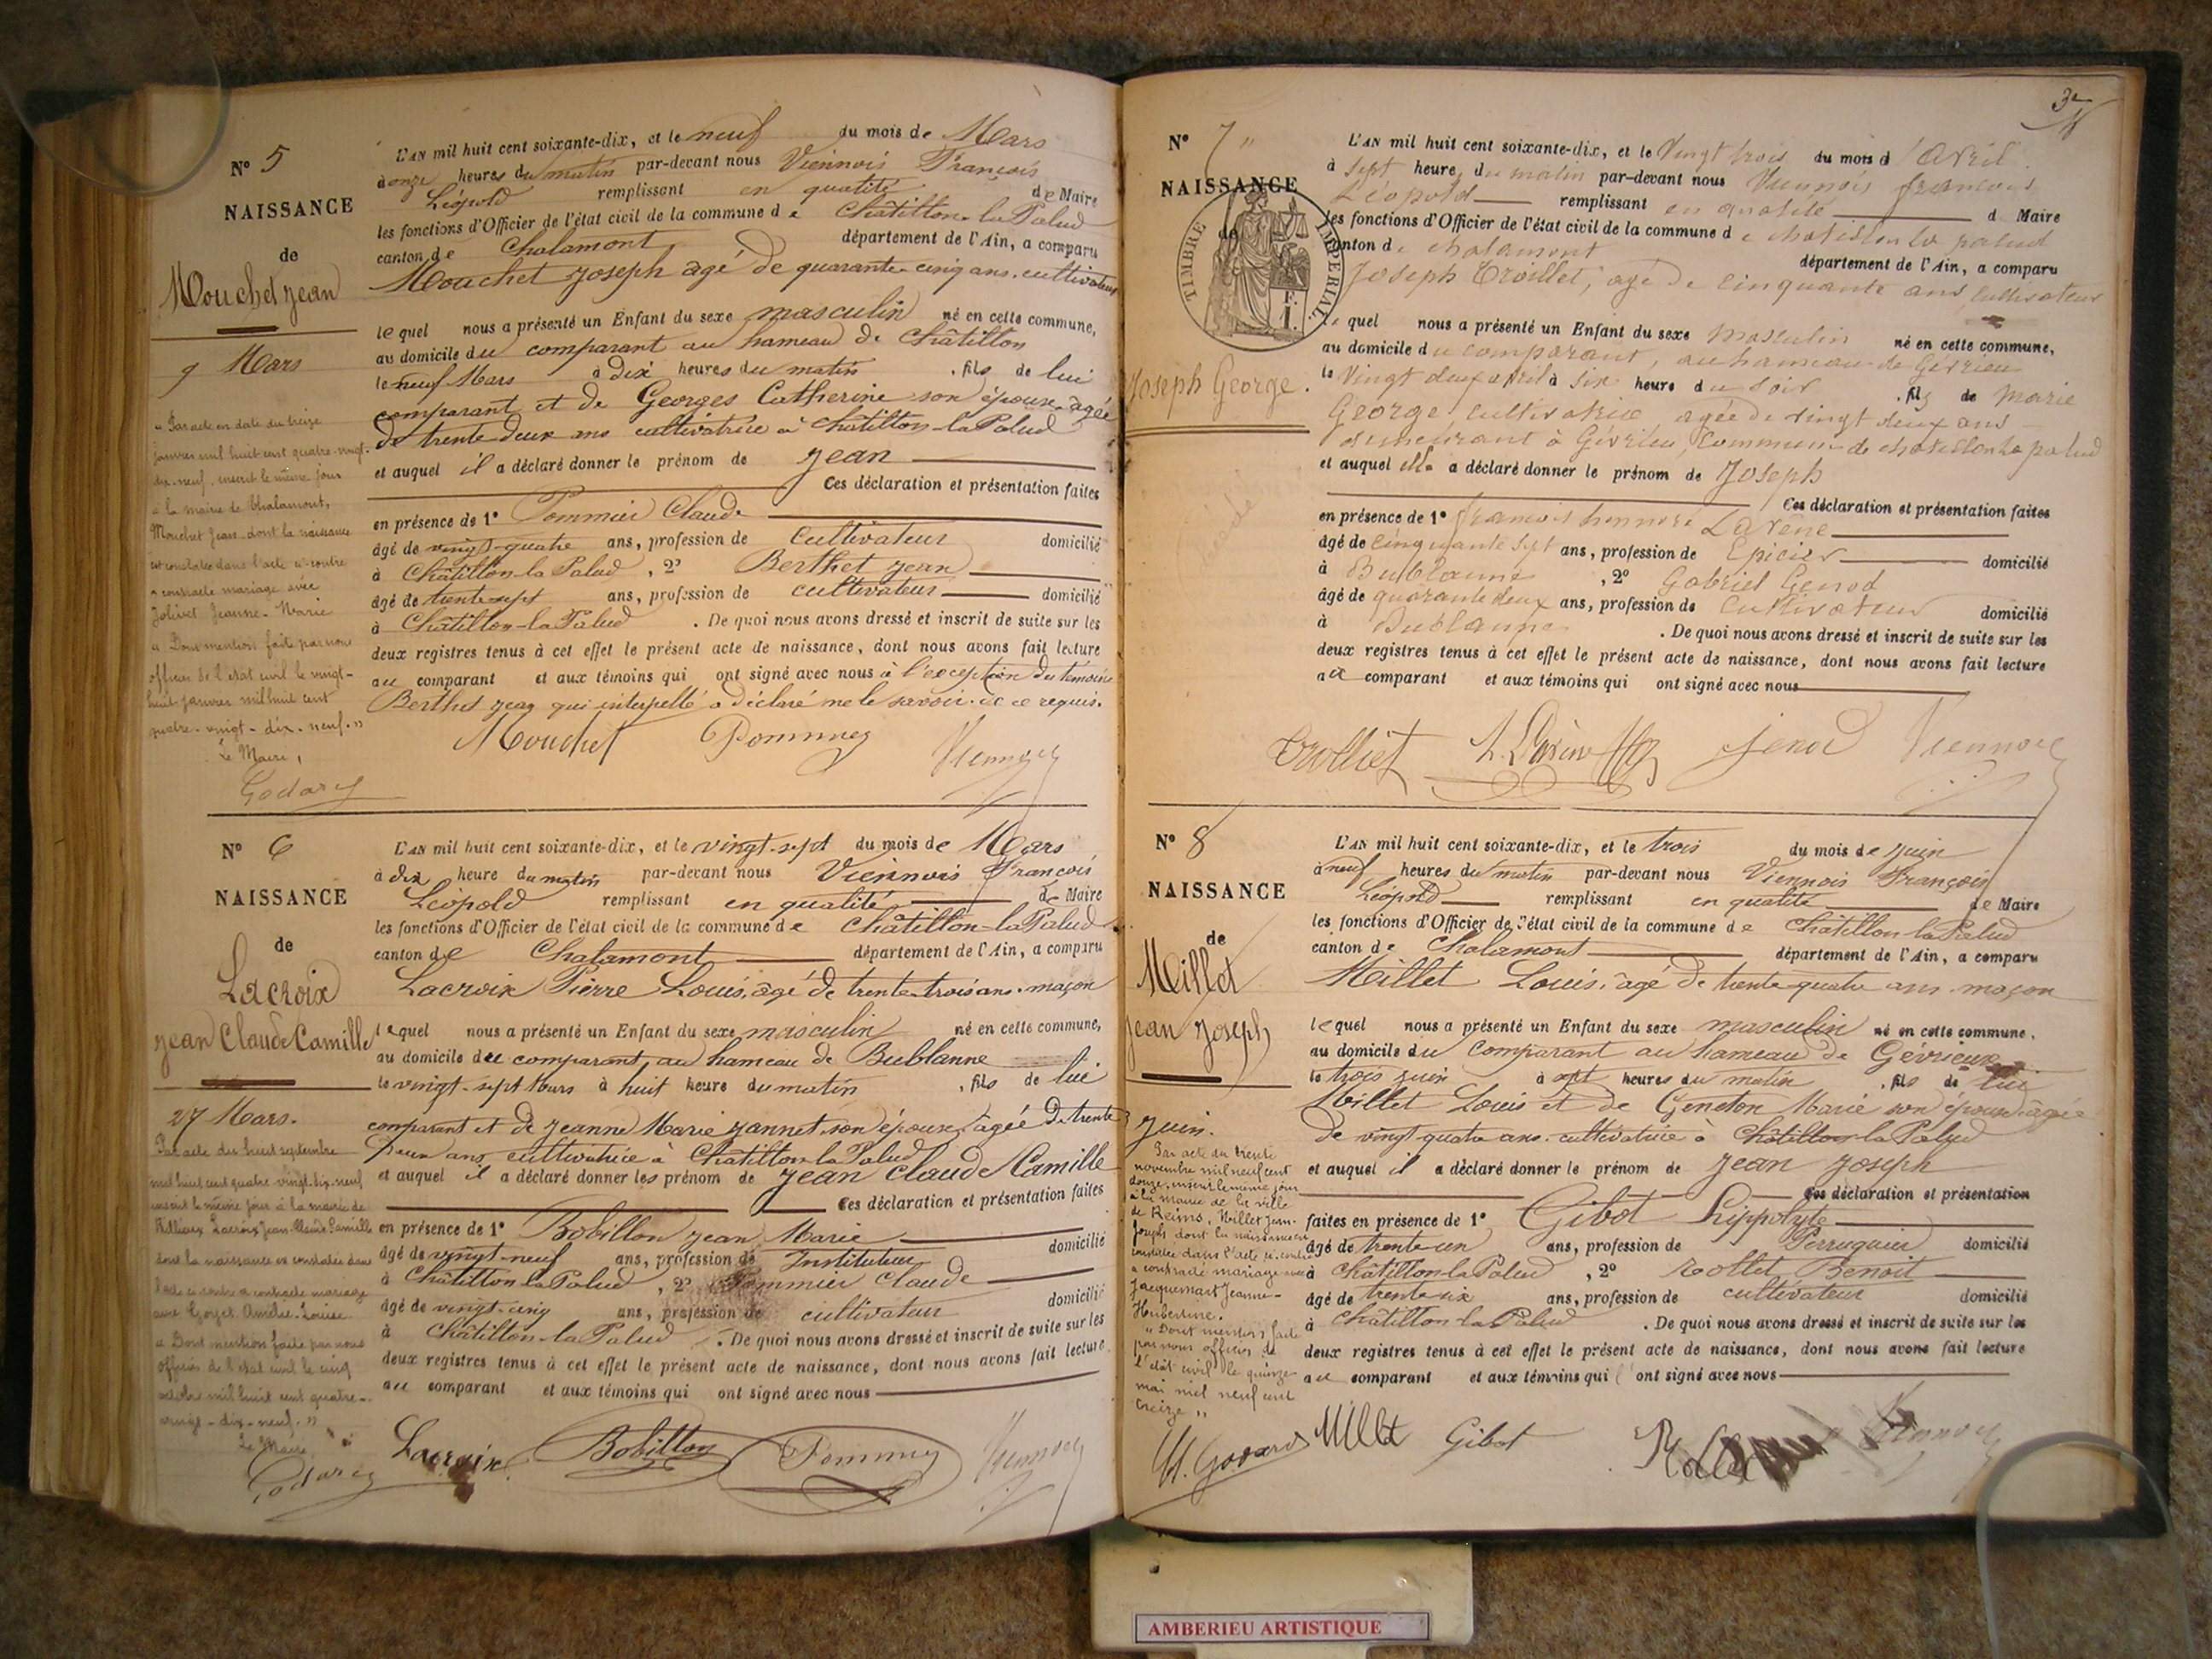 N° 5
NAISSANCE
de
Mouchet Jean
9 Mars
" Par acte en date du treize
janvier mil huit cent quatre-vingt-
dix-neuf, inscrit le même jour
à la mairie de Chalamont,
Mouchet Jean dont la naissance
est constatée dans l'acte ci-contre
a contracté mariage avec
Jolivet Jeanne-Marie
" Dont mention faite par nous
officier de l'état civil le vingt-
huit janvier mil huit cent
quatre-vingt-dix-neuf. "
Le Maire,
Godard
L'AN mil huit cent soixante-dix, et le neuf du mois de Mars
à onze heures du matin par-devant nous Viennois François
Léopold remplissant en qualité de Maire
les fonctions d'Officier de l'état civil de la commune de Châtillon-la-Palud
canton de Chalamont département de l'Ain, a comparu
Mouchet Joseph agé de quarante-cinq ans, cultivateur
lequel nous a présenté un Enfant du sexe masculin né en cette commune,
au domicile du comparant au hameau de Châtillon
le neuf Mars à dix heures du matin, fils de lui
comparant et de Georges Catherine son épouse, agée
de trente deux ans cultivatrice à Châtillon-la-Palud
et auquel il a déclaré donner le prénom de Jean
Ces déclaration et présentation faites
en présence de 1° Pommier Claude
âgé de vingt-quatre ans, profession de Cultivateur domicilié
à Châtillon-la-Palud, 2° Berthet Jean
âgé de trente-sept ans, profession de cultivateur domicilié
à Châtillon-la-Palud. De quoi nous avons dressé et inscrit de suite sur les
deux registres tenus à cet effet le présent acte de naissance, dont nous avons fait lecture
au comparant et aux témoins qui ont signé avec nous à l'exception du témoin
Berthet Jean qui interpellé a déclaré ne le savoir de ce requis.
Mouchet Pommier Viennois
N° 6
NAISSANCE
de
Lacroix
Jean Claude Camille
27 Mars.
Par acte du huit septembre
mil huit cent quatre-vingt-dix-neuf
inscrit le même jour à la mairie de
Rillieux Lacroix Jean-Claude Camille
dont la naissance est constatée dans
l'acte ci-contre a contracté mariage
avec Gorget Amélie-Louise
" Dont mention faite par nous
officier de l'état civil le cinq
octobre mil huit cent quatre-
vingt-dix-neuf. "
Le Maire
Godard
L'AN mil huit cent soixante-dix, et le vingt-sept du mois de Mars
à dix heure du matin par-devant nous Viennois François
Léopold remplissant en qualité de Maire
les fonctions d'Officier de l'état civil de la commune de Châtillon-la-Palud
canton de Chalamont département de l'Ain, a comparu
Lacroix Pierre Louis, agé de trente-trois ans, maçon
lequel nous a présenté un Enfant du sexe masculin né en cette commune,
au domicile du comparant, au hameau de Bublanne
le vingt-sept Mars à huit heure du matin, fils de lui
comparant et de Jeanne Marie Jannet son épouse, agée de trente
deux ans, cultivatrice à Châtillon-la-Palud
et auquel il a déclaré donner les prénom de Jean Claude Camille
Ces déclaration et présentation faites
en présence de 1° Bobillon Jean Marie
âgé de vingt-neuf ans, profession de Instituteur domicilié
à Châtillon-la-Palud, 2° Pommier Claude
âgé de vingt-cinq ans, profession de cultivateur domicilié
à Châtillon-la-Palud. De quoi nous avons dressé et inscrit de suite sur les
deux registres tenus à cet effet le présent acte de naissance, dont nous avons fait lecture
au comparant et aux témoins qui ont signé avec nous
Lacroix Bobillon Pommier Viennois
N° 7
NAISSANCE
de
TIMBRE IMPERIAL
F. 1.
Joseph George.
L'AN mil huit cent soixante-dix, et le Vingt trois du mois d'Avril
à sept heure du matin par-devant nous Viennois françois
Léopold remplissant en qualité d Maire
les fonctions d'Officier de l'état civil de la commune de chatillon la palud
canton de chalamont département de l'Ain, a comparu
Joseph Trolliet, agé de cinquante ans Cultivateur
le quel nous a présenté un Enfant du sexe Masculin né en cette commune,
au domicile du comparant, au hameau de Gévrieu
le Vingt deux avril à six heure du soir, fils de Marie
George cultivatrice agée de vingt deux ans
demeurant à Gévrieu, commune de chatillon la palud
et auquel elle a déclaré donner le prénom de Joseph
Ces déclaration et présentation faites
en présence de 1° françois honnoré Larène
âgé de cinquante sept ans, profession de Epicier domicilié
à Bublanne, 2° Gabriel Genod
âgé de quarante deux ans, profession de Cultivateur domicilié
à Bublanne. De quoi nous avons dressé et inscrit de suite sur les
deux registres tenus à cet effet le présent acte de naissance, dont nous avons fait lecture
au comparant et aux témoins qui ont signé avec nous
Trolliet Jenod Viennois
N° 8
NAISSANCE
de
Millet
Jean Joseph
3 Juin.
Par acte du trente
novembre mil neuf cent
douze, inscrit le même jour
à la mairie de la ville
de Reims, Millet Jean-
Joseph dont la naissance est
constatée dans l'acte ci-contre
a contracté mariage avec
Jacquemart Jeanne-
Hubertine.
" Dont mention faite
par nous officier de
l'état civil le quinze
mai mil neuf cent
treize "
H. Godard
L'AN mil huit cent soixante-dix, et le trois du mois de Juin
à neuf heures du matin par-devant nous Viennois François
Léopold remplissant en qualité de Maire
les fonctions d'Officier de l'état civil de la commune de Châtillon-la-Palud
canton de Chalamont département de l'Ain, a comparu
Millet Louis, agé de trente-quatre ans, maçon
lequel nous a présenté un Enfant du sexe masculin né en cette commune,
au domicile du comparant au hameau de Gévrieux
le trois Juin à sept heures du matin, fils de lui
Millet Louis et de Geneton Marie son épouse agée
de vingt-quatre ans, cultivatrice à Châtillon-la-Palud
et auquel il a déclaré donner le prénom de Jean Joseph
Ces déclaration et présentation
faites en présence de 1° Gibot Hippolyte
âgé de trente un ans, profession de Perruquier domicilié
à Châtillon-la-Palud, 2° Rollet Benoit
âgé de trente six ans, profession de cultivateur domicilié
à Châtillon-la-Palud. De quoi nous avons dressé et inscrit de suite sur les
deux registres tenus à cet effet le présent acte de naissance, dont nous avons fait lecture
au comparant et aux témoins qui ont signé avec nous
Millet Gibot Rollet Viennois
AMBERIEU ARTISTIQUE